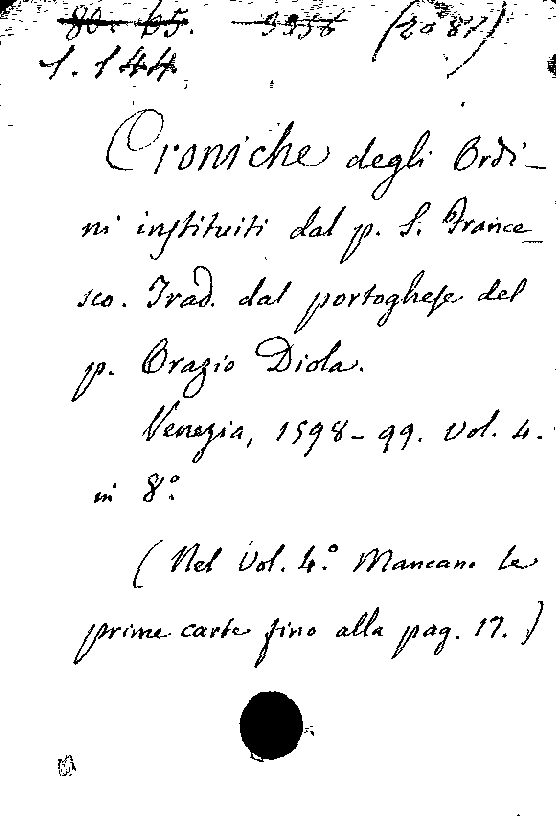 80. 65. 3356 (2087)
1. 144
Croniche degli Ordi_
ni instituiti dal p. S. France_
sco. Trad. dal portoghese del
p. Orazio Diola.
Venezia, 1598-99. Vol. 4.
in 8.º
(Nel Vol. 4.º Mancano le
prime carte fino alla pag. 17.)